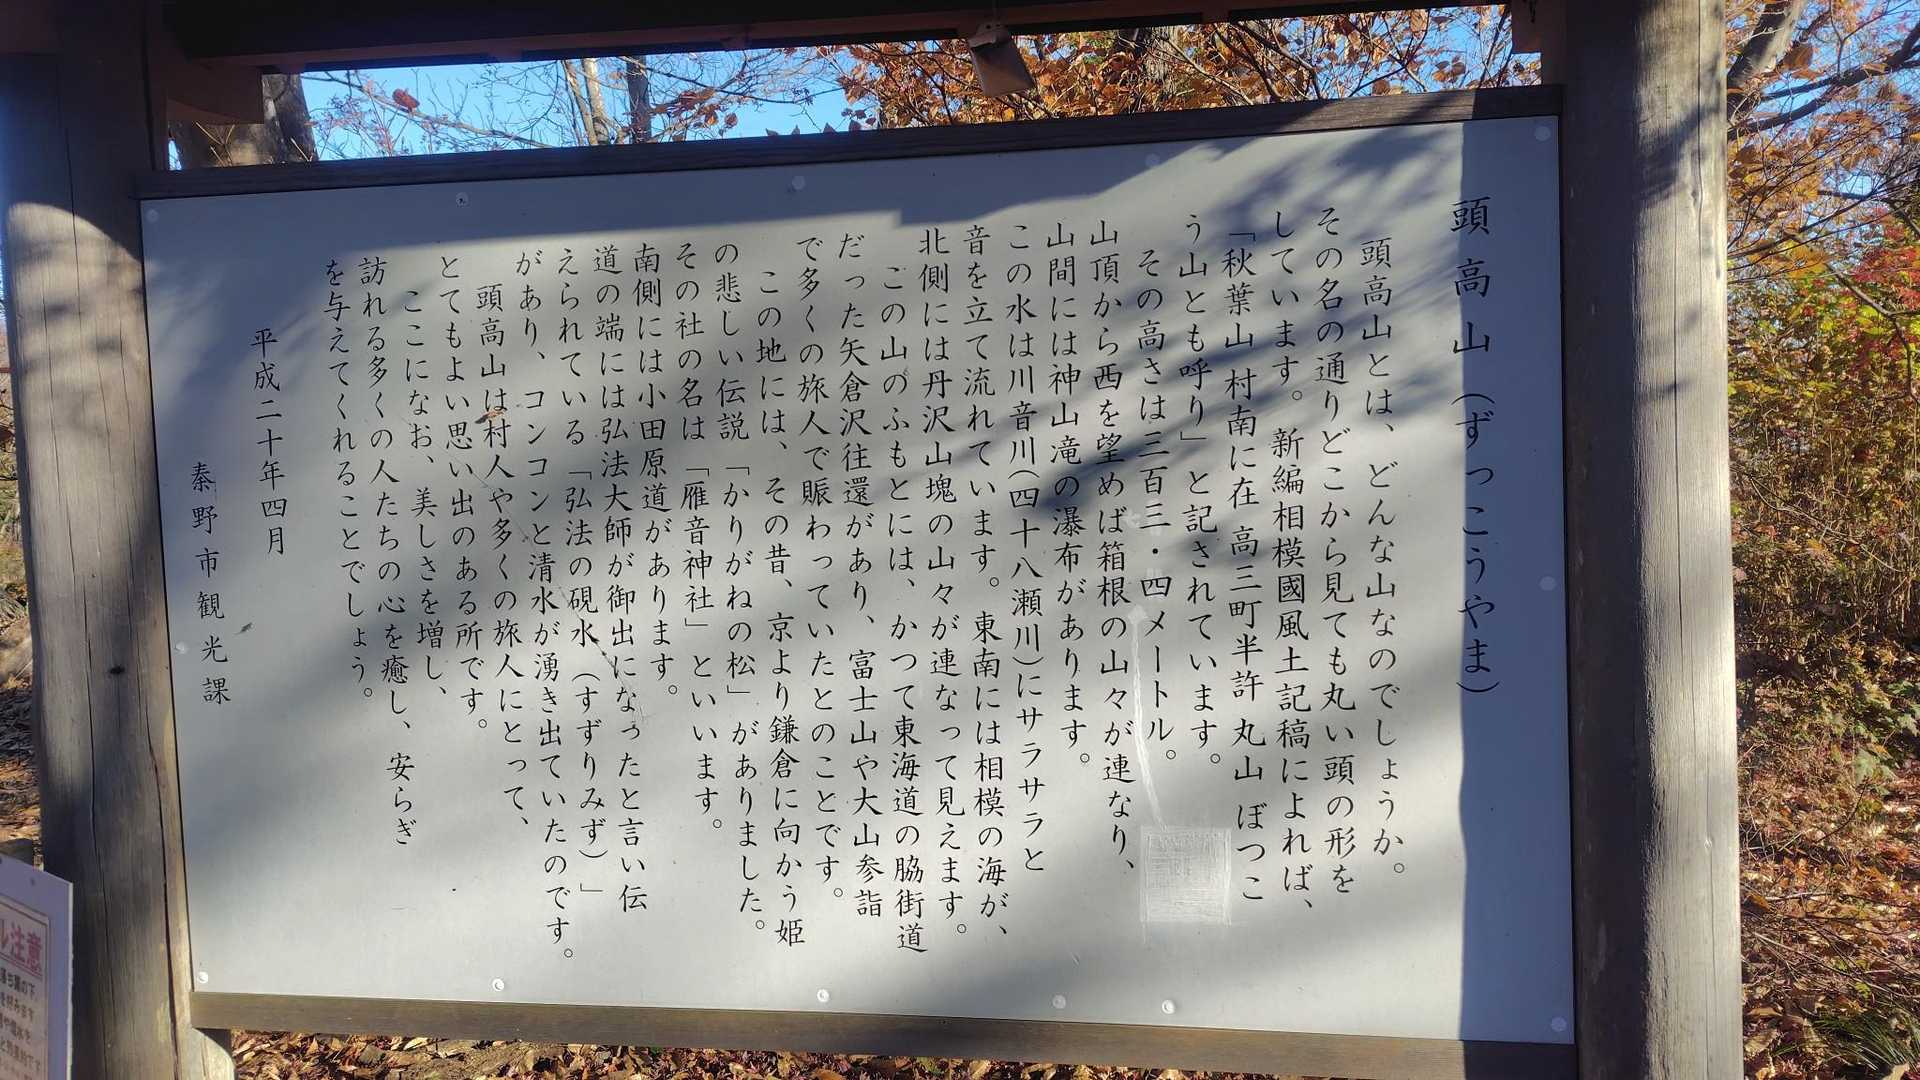 頭高山（ずっこうやま）
頭高山とは、どんな山なのでしょうか。
その名の通りどこから見ても丸い頭の形を
しています。新編相模國風土記稿によれば、
「秋葉山 村南に在 高三町半許 丸山 ぼつこ
う山とも呼り」と記されています。
その高さは三百三・四メートル。
山頂から西を望めば箱根の山々が連なり、
山間には神山滝の瀑布があります。
この水は川音川（四十八瀬川）にサラサラと
音を立て流れています。東南には相模の海が、
北側には丹沢山塊の山々が連なって見えます。
この山のふもとには、かつて東海道の脇街道
だった矢倉沢往還があり、富士山や大山参詣
で多くの旅人で賑わっていたとのことです。
この地には、その昔、京より鎌倉に向かう姫
の悲しい伝説「かりがねの松」がありました。
その社の名は「雁音神社」といいます。
南側には小田原道があります。
道の端には弘法大師が御出になったと言い伝
えられている「弘法の硯水（すずりみず）」
があり、コンコンと清水が湧き出ていたのです。
頭高山は村人や多くの旅人にとって、
とてもよい思い出のある所です。
ここになお、美しさを増し、
訪れる多くの人たちの心を癒し、安らぎ
を与えてくれることでしょう。
平成二十年四月
秦野市観光課
ル注意